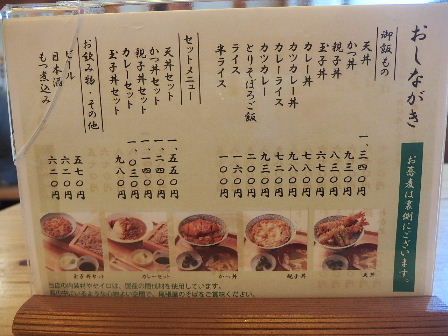 おしながき
お蕎麦は裏側にございます。
御飯もの
天丼 一、三四〇円
かつ丼 九三〇円
親子丼 八三〇円
玉子丼 六七〇円
カツカレー丼 九八〇円
カレー丼 七八〇円
カレーライス 七二〇円
カツカレー 九三〇円
とりそぼろご飯 二八〇円
ライス 一六〇円
半ライス 一〇〇円
セットメニュー
天丼セット 一、五五〇円
かつ丼セット 一、二四〇円
親子丼セット 一、一四〇円
カレーセット 一、〇三〇円
玉子丼セット 九八〇円
お飲み物・その他
ビール 五七〇円
日本酒 六二〇円
もつ煮込み 六二〇円
玉子丼セット
カレーセット
かつ丼
親子丼
天丼
当店の内装材やセイロは、国産の間伐材を使用しています。